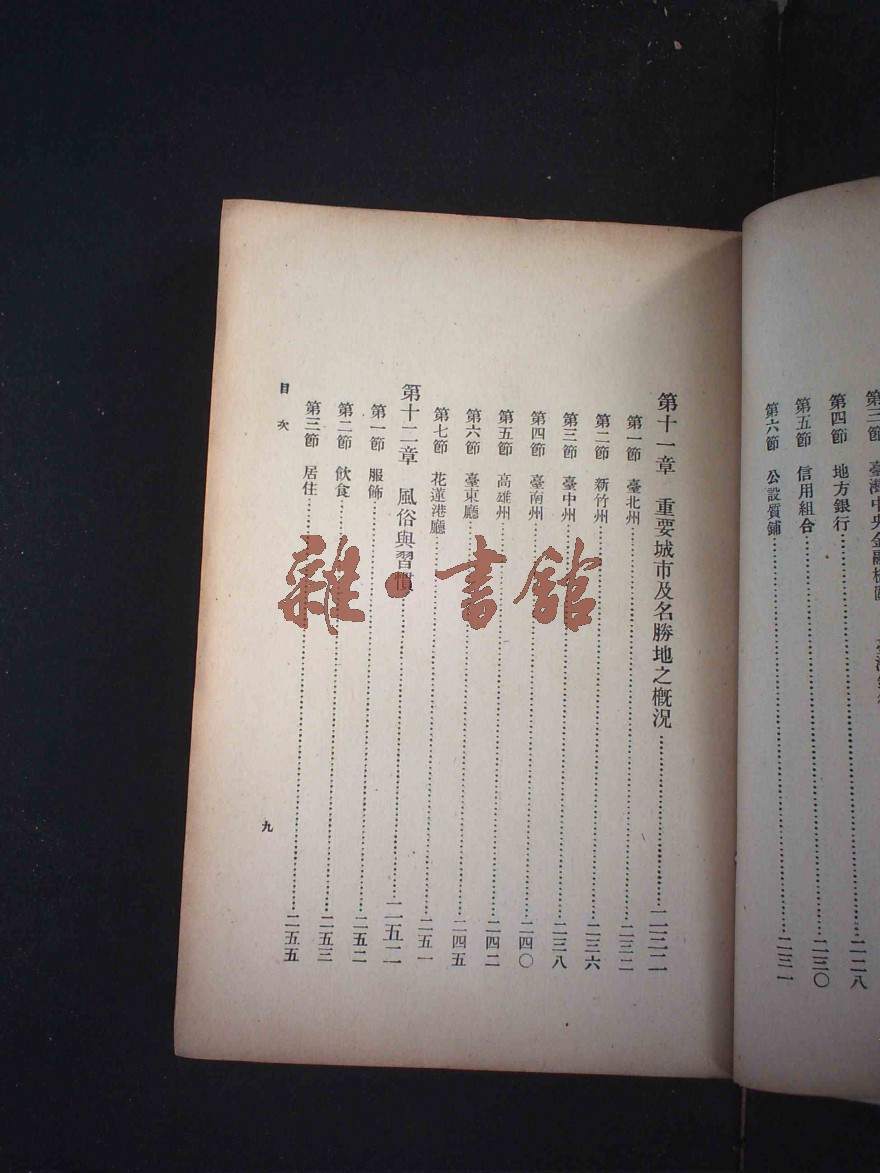 第三節 臺灣中央金融機關
第四節 地方銀行……二二八
第五節 信用組合……二三〇
第六節 公設質鋪……二三一
第十一章 重要城市及名勝地之槪況……二三二
第一節 臺北州……二三二
第二節 新竹州……二三六
第三節 臺中州……二三八
第四節 臺南州……二四〇
第五節 高雄州……二四二
第六節 臺東廳……二四五
第七節 花蓮港廳……二五一
第十二章 風俗與習慣……二五二
第一節 服飾……二五二
第二節 飲食……二五三
第三節 居住……二五五
目次
九
雜·書館